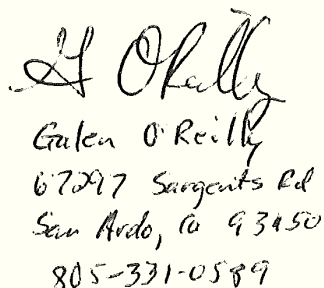 G O'Reilly
Galen O'Reilly
67297 Sargents Rd
San Ardo, Ca 93450
805-331-0589